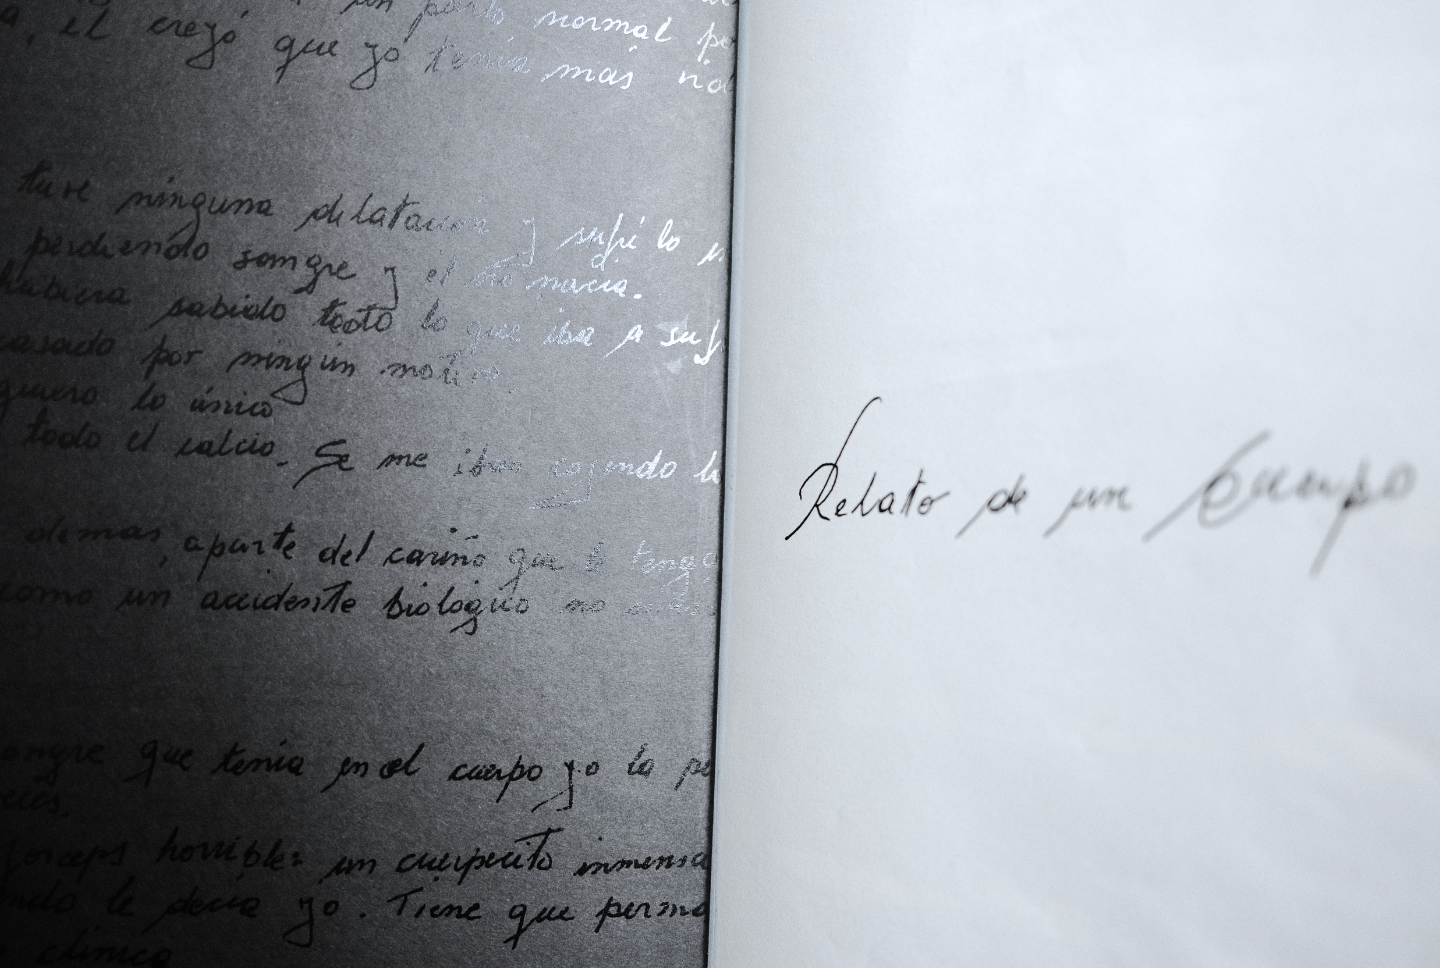 un parto normal
el creyó que yo tenía más
tuve ninguna delatación y sufrí lo
perdiendo sangre y él no nacía.
hubiera sabido todo lo que iba a
casado por ningún motivo.
quiero lo único
todo el calcio. Se me iban cogiendo
demas, aparte del cariño que le tengo
como un accidente biológico no
sangre que tenía en el cuerpo yo la
forceps horribles un cuerpecito inmenso
le decía yo. Tiene que
clínico
Relato de un Cuerpo